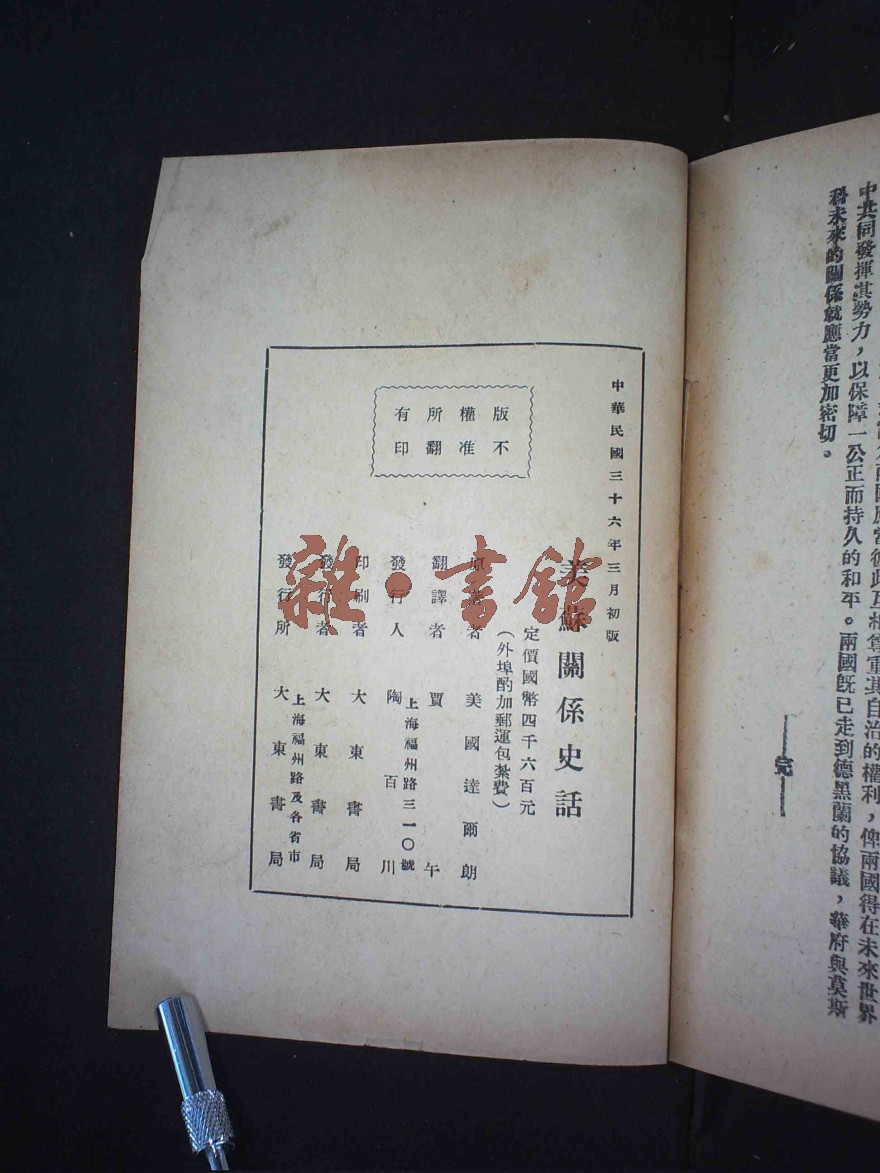 中共同發揮其勢力，以保障一公正而持久的和平。兩國既已走到德黑蘭的協議，華府與莫斯
科未來的關係就應當更加密切。
完
中華民國三十六年三月初版
美蘇關係史話
定價國幣四千六百元
（外埠酌加郵運包紮費）
版權所有
不准翻印
原著者 美國達爾朗
翻譯者 賈午
發行人 陶百川
上海福州路三一〇號
印刷者 大東書局
發行者 大東書局
發行所 大東書局
上海福州路及各省市
雜·書館